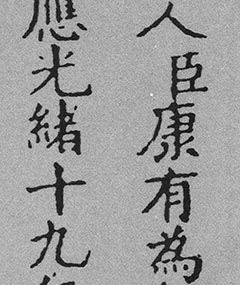 人臣康有為
應光緒十九